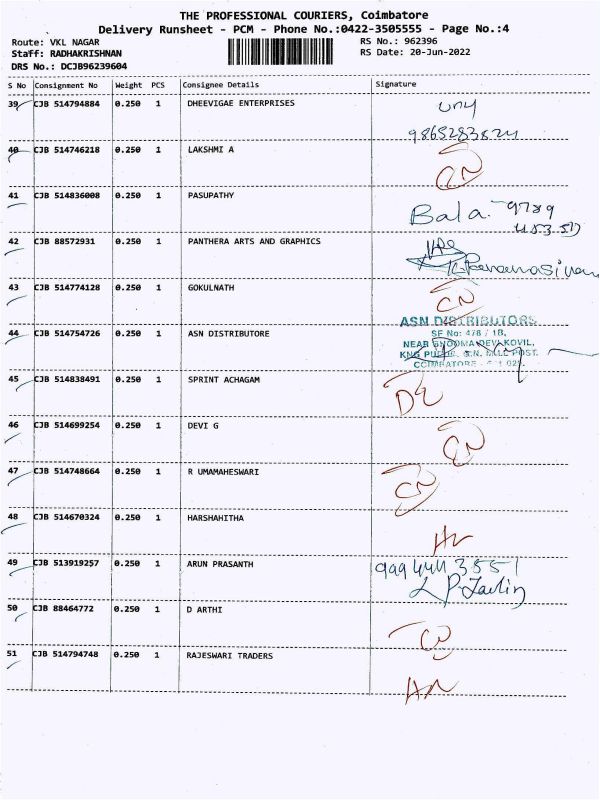 THE PROFESSIONAL COURIERS, Coimbatore
Delivery Runsheet - PCM - Phone No.:0422-3505555 - Page No.:4
Route: VKL NAGAR
RS No.: 962396
Staff: RADHAKRISHNAN
RS Date: 20-Jun-2022
DRS No.: DCJB96239604
S No Consignment No Weight PCS Consignee Details Signature
39 CJB 514794884 0.250 1 DHEEVIGAE ENTERPRISES
40 CJB 514746218 0.250 1 LAKSHMI A
41 CJB 514836008 0.250 1 PASUPATHY Bala. 9789
42 CJB 88572931 0.250 1 PANTHERA ARTS AND GRAPHICS
43 CJB 514774128 0.250 1 GOKULNATH CN
ASN DISTRIBUTORS
44 CJB 514754726 0.250 1 ASN DISTRIBUTORE SF No: 478 / 1B,
45 CJB 514838491 0.250 1 SPRINT ACHAGAM
46 CJB 514699254 0.250 1 DEVI G CN
47 CJB 514748664 0.250 1 R UMAMAHESWARI CN
48 CJB 514670324 0.250 1 HARSHAHITHA
49 CJB 513919257 0.250 1 ARUN PRASANTH
50 CJB 88464772 0.250 1 D ARTHI
51 CJB 514794748 0.250 1 RAJESWARI TRADERS